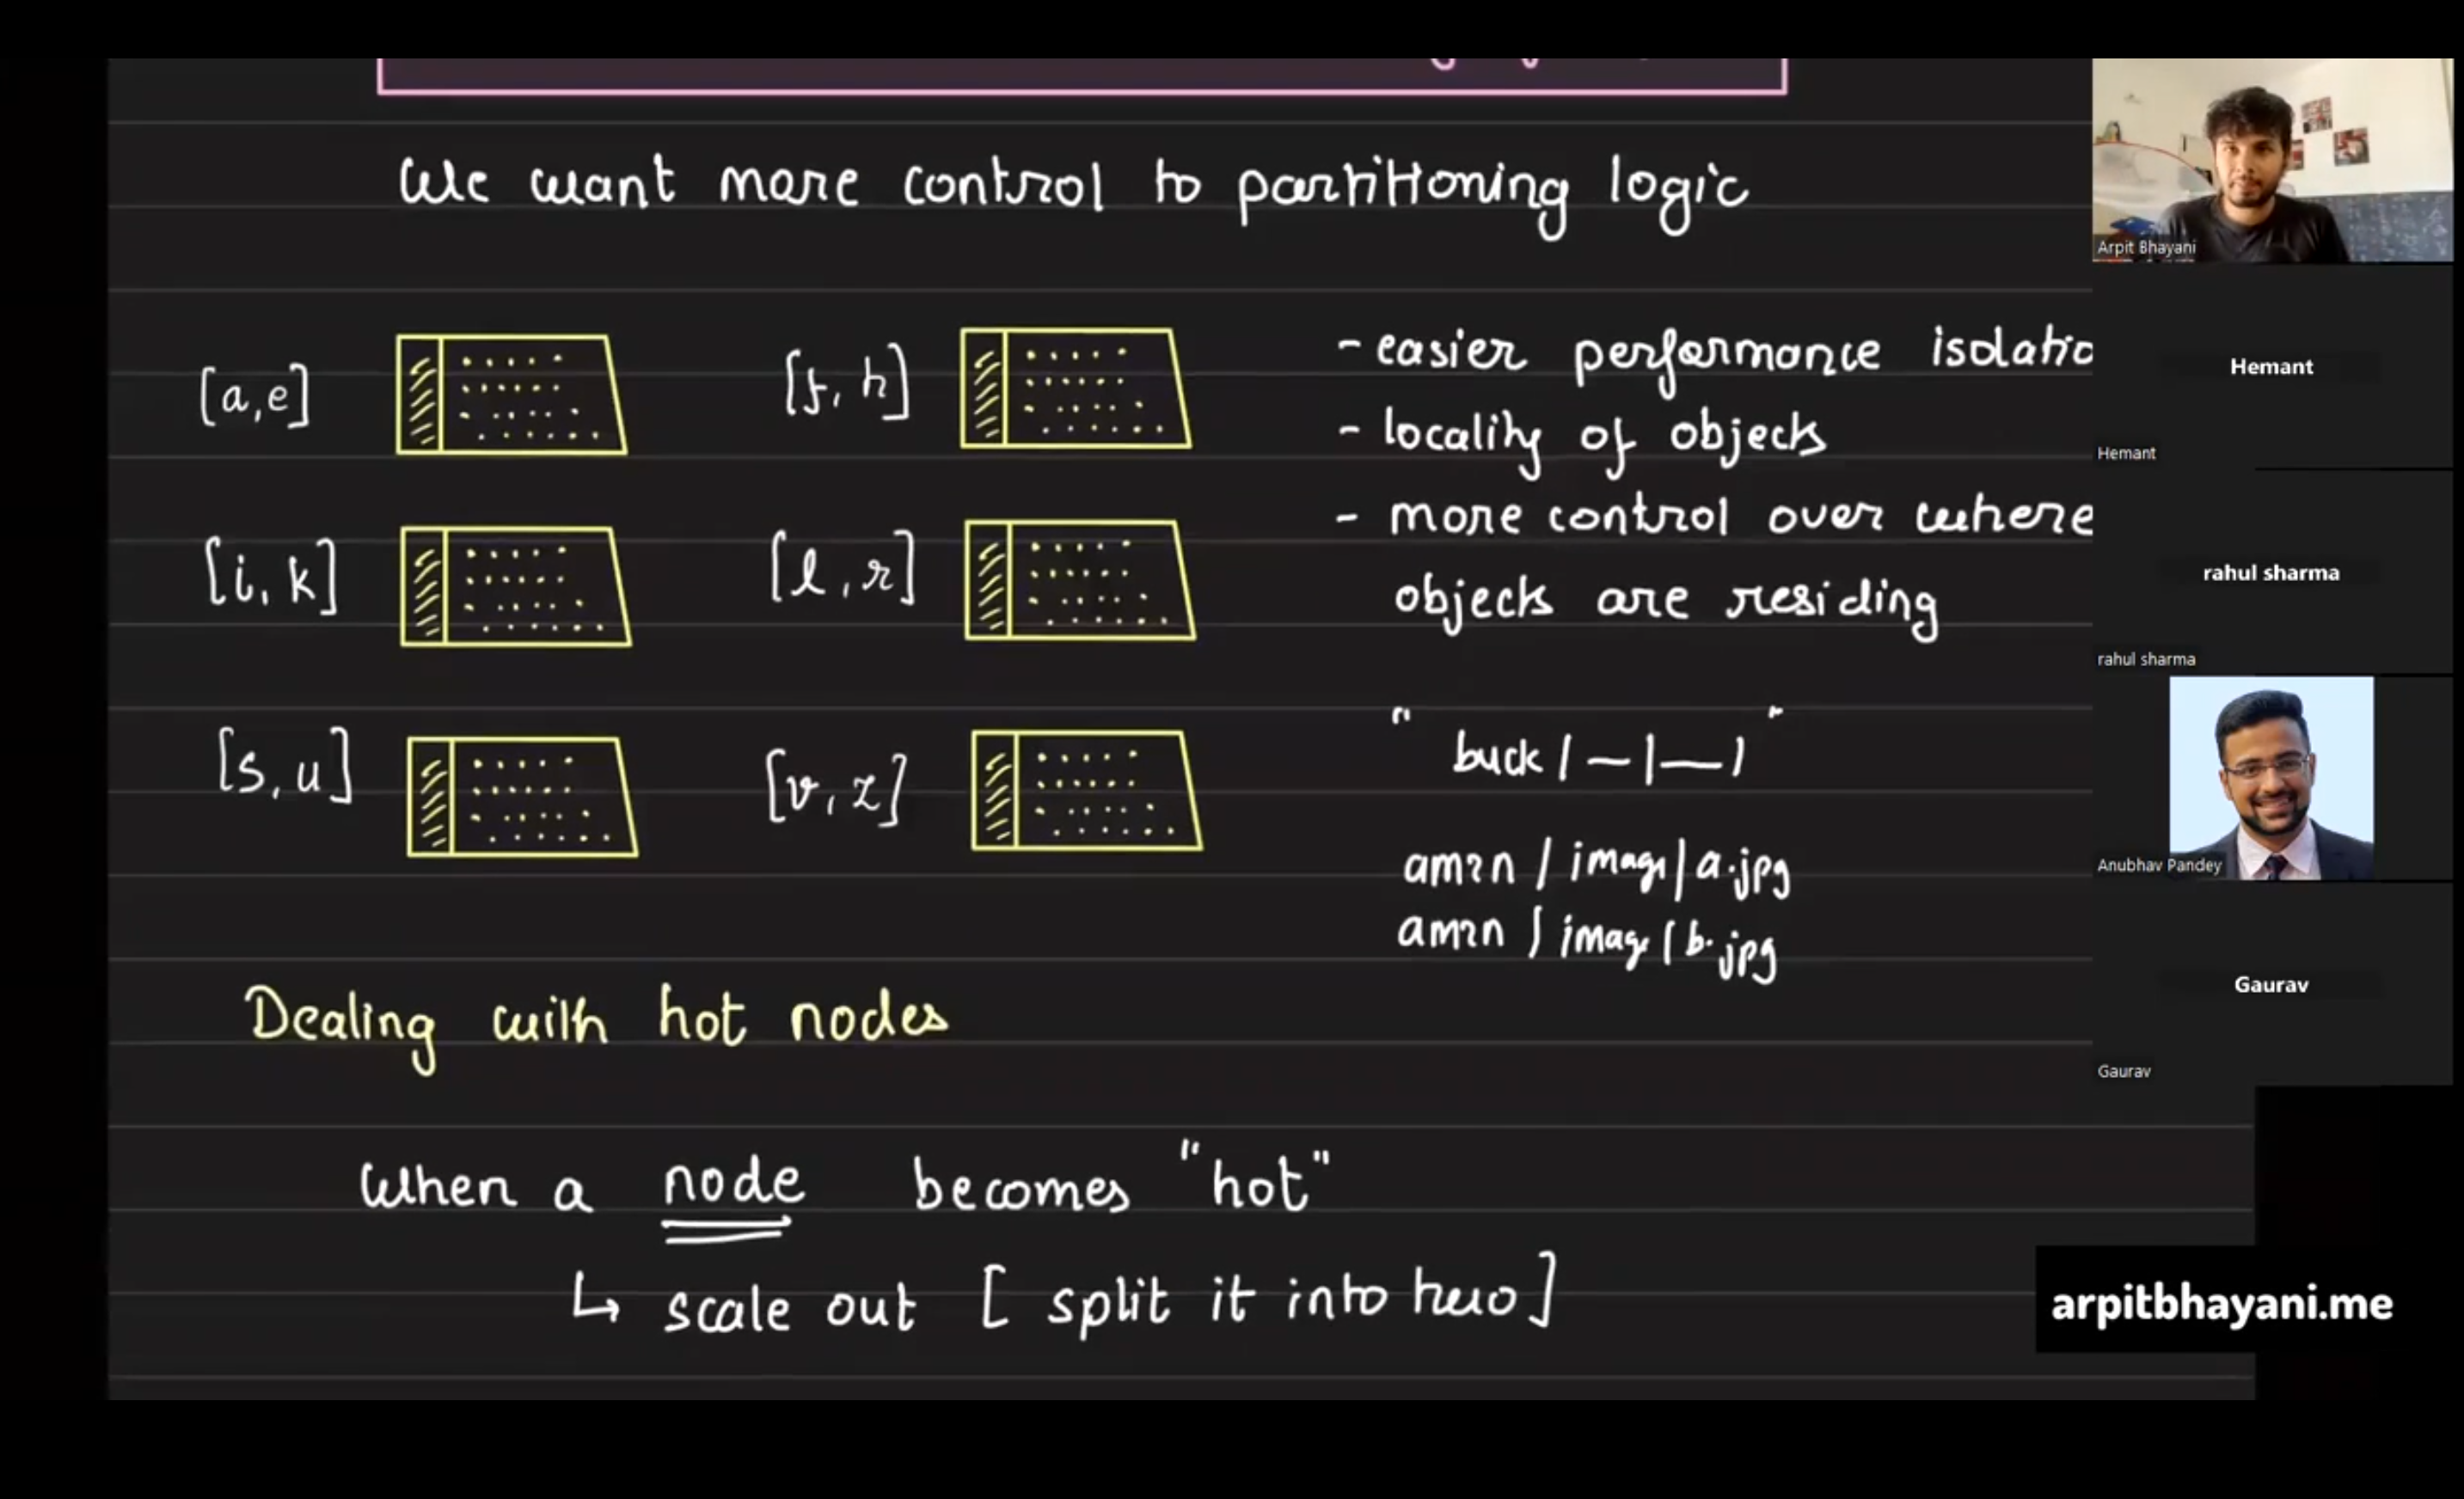 We want more control to partitioning logic
[a,e]
[f, h]
[i, k]
[l, r]
[s, u]
[v, z]
- easier performance isolatio
- locality of objects
- more control over where
objects are residing
" buck / — / — / "
amzn / image / a.jpg
amzn / image / b.jpg
Dealing with hot nodes
When a node becomes "hot"
↳ scale out [ split it into two ]
Arpit Bhayani
Hemant
Hemant
rahul sharma
rahul sharma
Anubhav Pandey
Gaurav
Gaurav
arpitbhayani.me